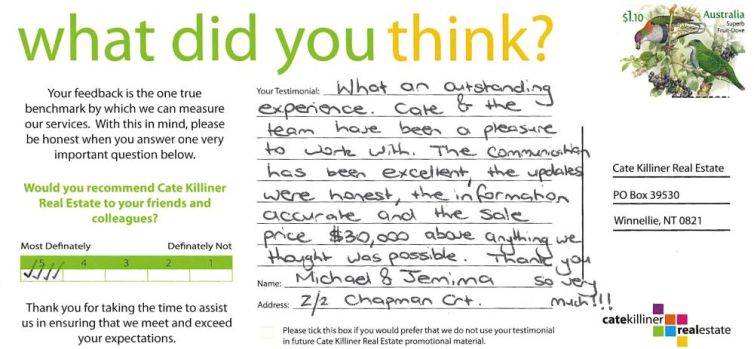 what did you think?
$1.10 Australia
Superb
Fruit-Dove
Your feedback is the one true
benchmark by which we can measure
our services. With this in mind, please
be honest when you answer one very
important question below.
Would you recommend Cate Killiner
Real Estate to your friends and
colleagues?
Most Definately Definately Not
5 4 3 2 1
Thank you for taking the time to assist
us in ensuring that we meet and exceed
your expectations.
Your Testimonial: What an outstanding
experience. Cate & the
team have been a pleasure
to work with. The communication
has been excellent, the updates
were honest, the information
accurate and the sale
price $30,000 above anything we
thought was possible. Thank you
so very
much!!!
Name: Michael & Jemima
Address: 2/2 Chapman Crt.
Please tick this box if you would prefer that we do not use your testimonial
in future Cate Killiner Real Estate promotional material.
Cate Killiner Real Estate
PO Box 39530
Winnellie, NT 0821
catekilliner
realestate